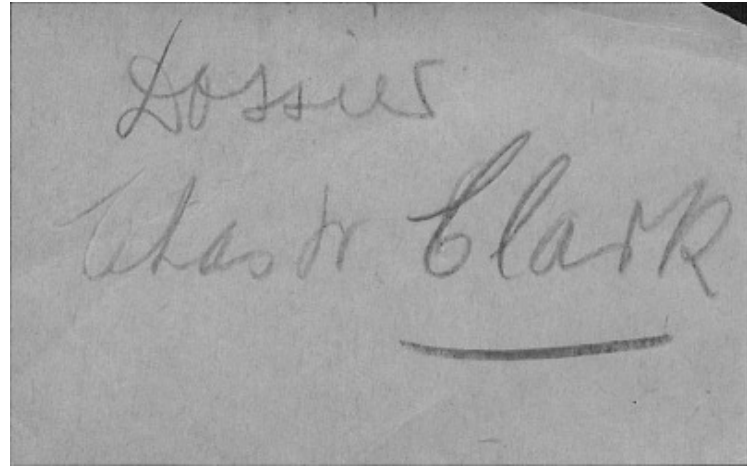 Dossier
Chas W. Clark